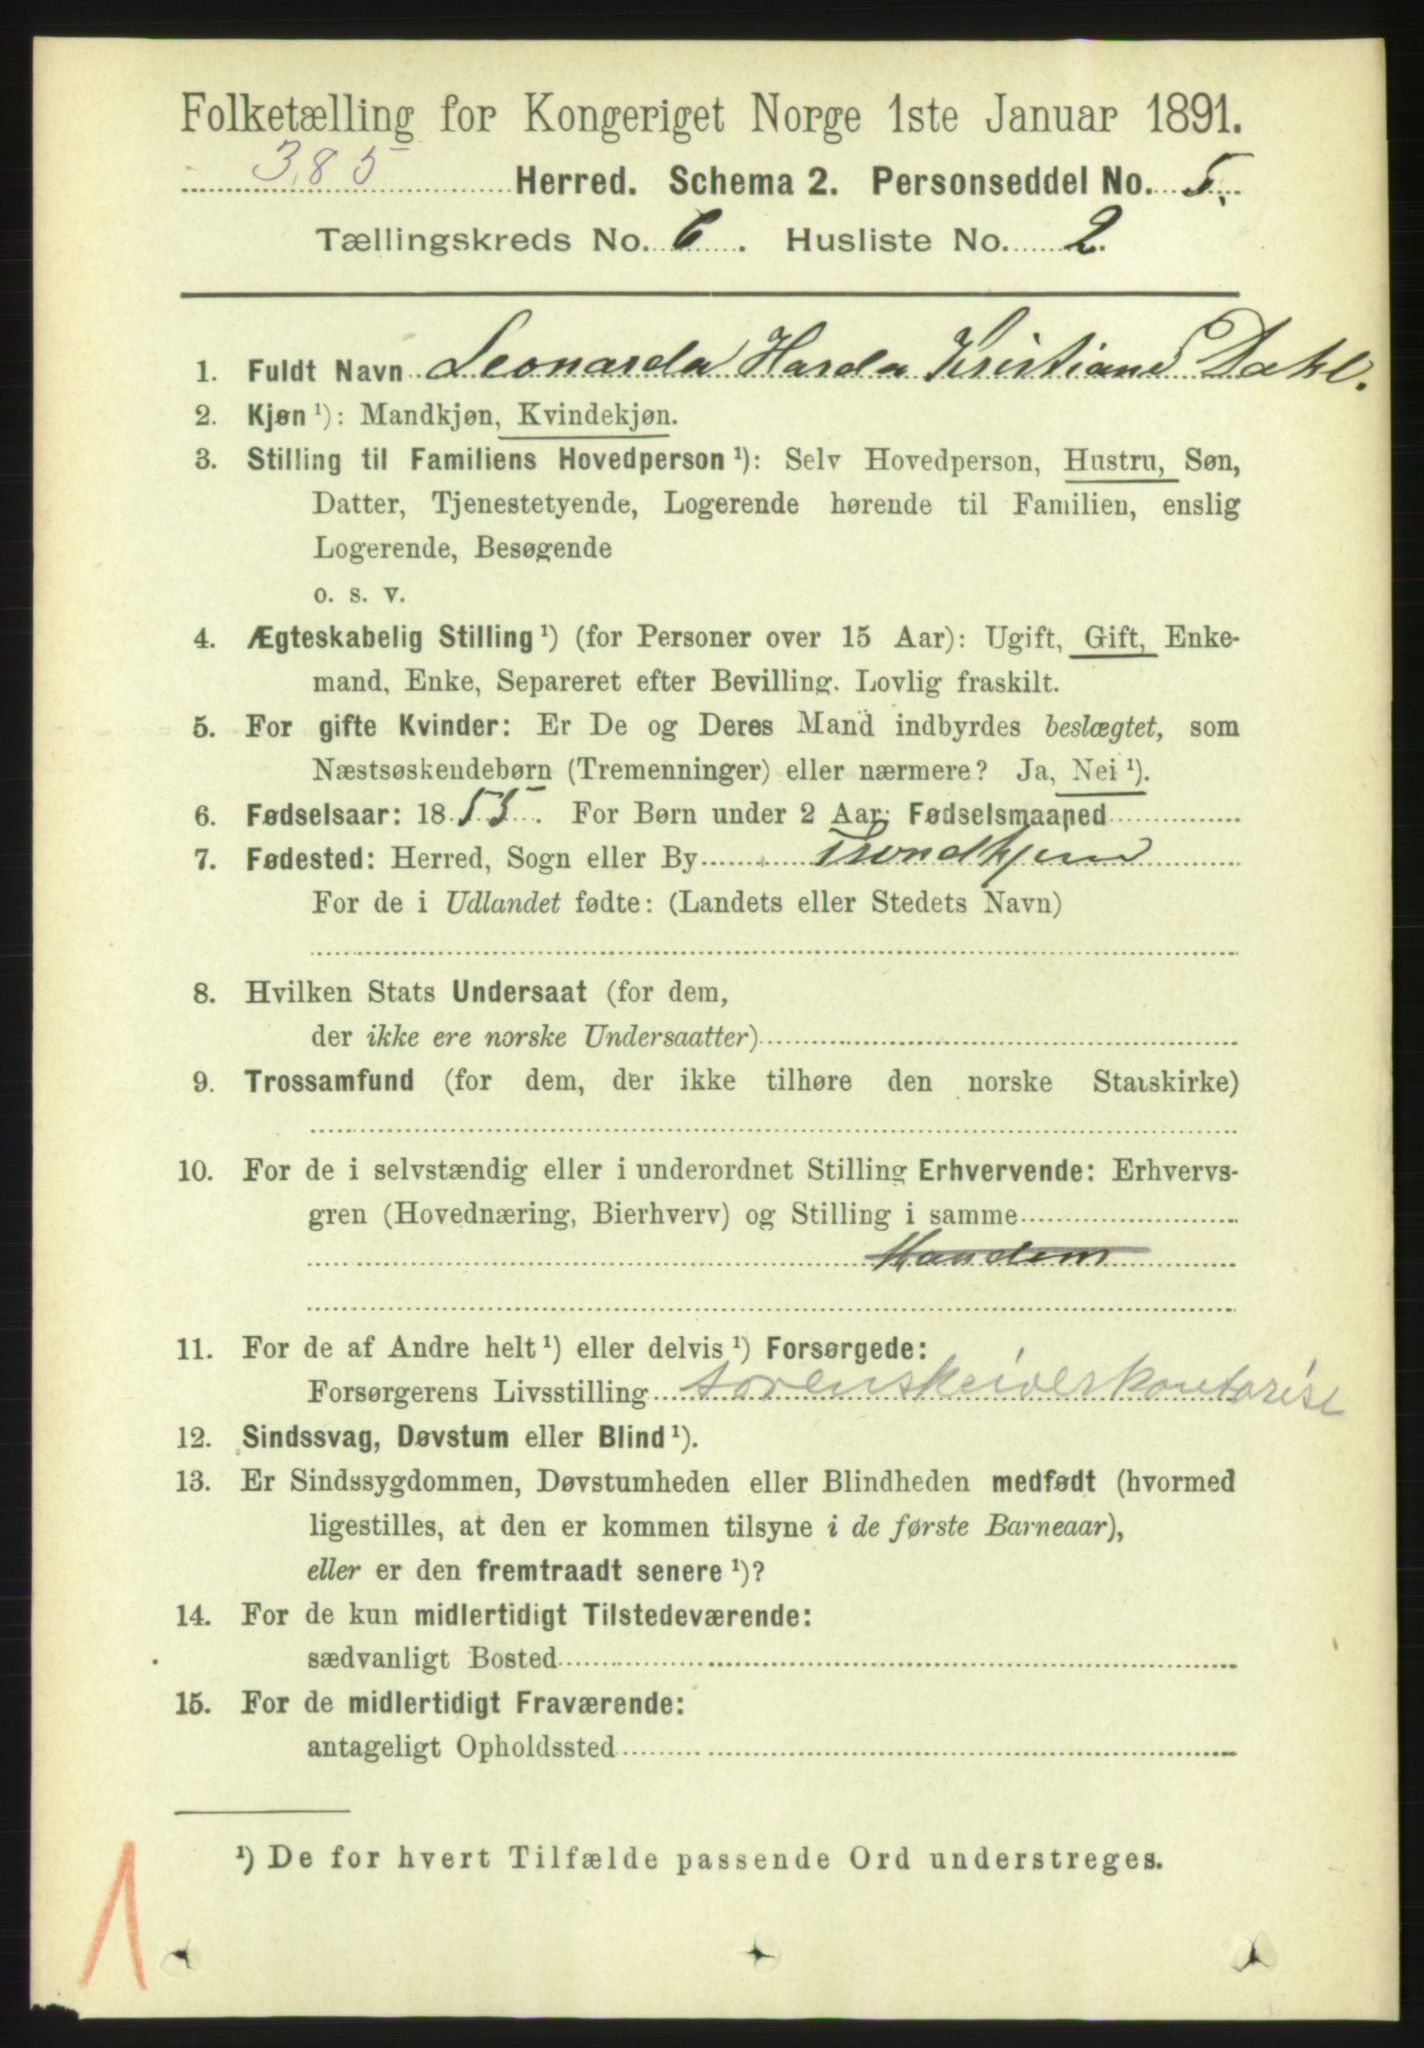 Folketælling for Kongeriget Norge 1ste Januar 1891.
385 Herred. Schema 2. Personseddel No. 5.
Tællingskreds No. 6. Husliste No. 2.
1. Fuldt Navn Leonarda Harda Kristiane Dahl.
2. Kjøn ¹): Mandkjøn, Kvindekjøn.
3. Stilling til Familiens Hovedperson ¹): Selv Hovedperson, Hustru, Søn,
Datter, Tjenestetyende, Logerende hørende til Familien, enslig
Logerende, Besøgende
o. s. v.
4. Ægteskabelig Stilling ¹) (for Personer over 15 Aar): Ugift, Gift, Enke-
mand, Enke, Separeret efter Bevilling. Lovlig fraskilt.
5. For gifte Kvinder: Er De og Deres Mand indbyrdes beslægtet, som
Næstsøskendebørn (Tremenninger) eller nærmere? Ja, Nei ¹).
6. Fødselsaar: 1855. For Børn under 2 Aar: Fødselsmaaned
7. Fødested: Herred, Sogn eller By Trondhjem
For de i Udlandet fødte: (Landets eller Stedets Navn)
8. Hvilken Stats Undersaat (for dem,
der ikke ere norske Undersaatter)
9. Trossamfund (for dem, der ikke tilhøre den norske Statskirke)
10. For de i selvstændig eller i underordnet Stilling Erhvervende: Erhvervs-
gren (Hovednæring, Bierhverv) og Stilling i samme
Manden
11. For de af Andre helt ¹) eller delvis ¹) Forsørgede:
Forsørgerens Livsstilling
12. Sindssvag, Døvstum eller Blind ¹).
13. Er Sindssygdommen, Døvstumheden eller Blindheden medfødt (hvormed
ligestilles, at den er kommen tilsyne i de første Barneaar),
eller er den fremtraadt senere ¹)?
14. For de kun midlertidigt Tilstedeværende:
sædvanligt Bosted
15. For de midlertidigt Fraværende:
antageligt Opholdssted
¹) De for hvert Tilfælde passende Ord understreges.
1